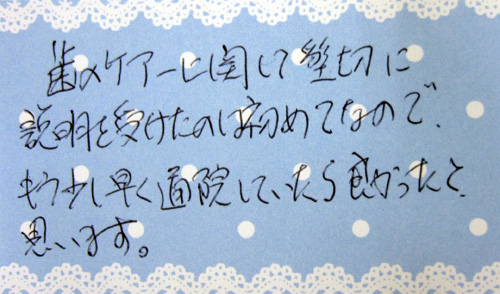 歯のケアーに関して懇切に
説明を受けたのは初めてなので、
もう少し早く通院していたら良かったと
思います。